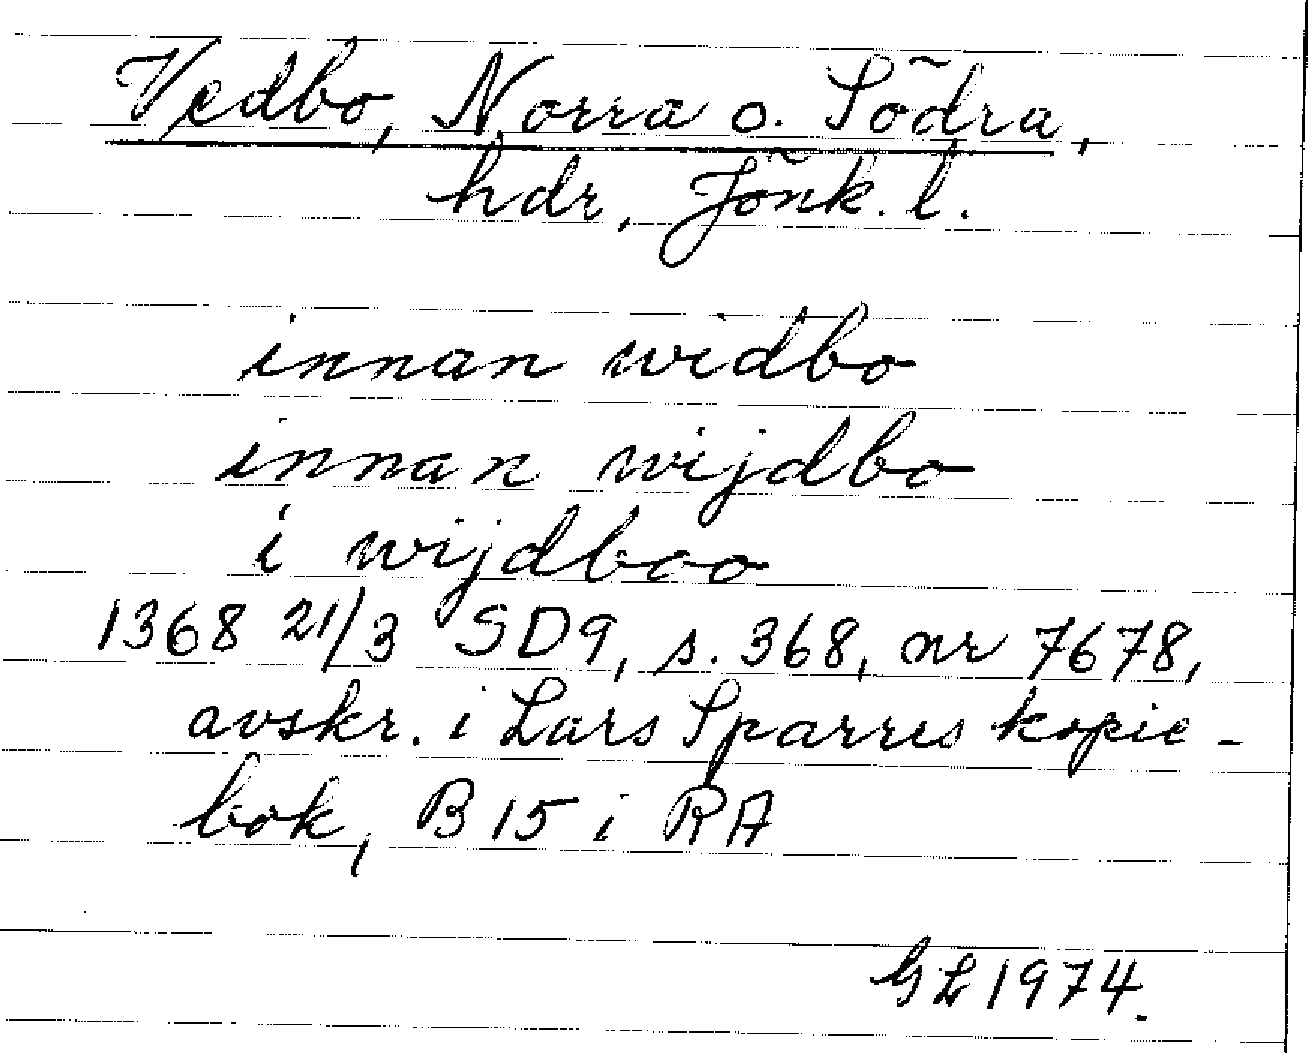 Vedbo, Norra o. Södra,
hdr, Jönk. l.
innan widbo
innan wijdbo
i wijdboo
1368 21/3 SD9, s. 368, nr 7678,
avskr. i Lars Sparres kopie-
bok, B 15 i RA
GL 1974.